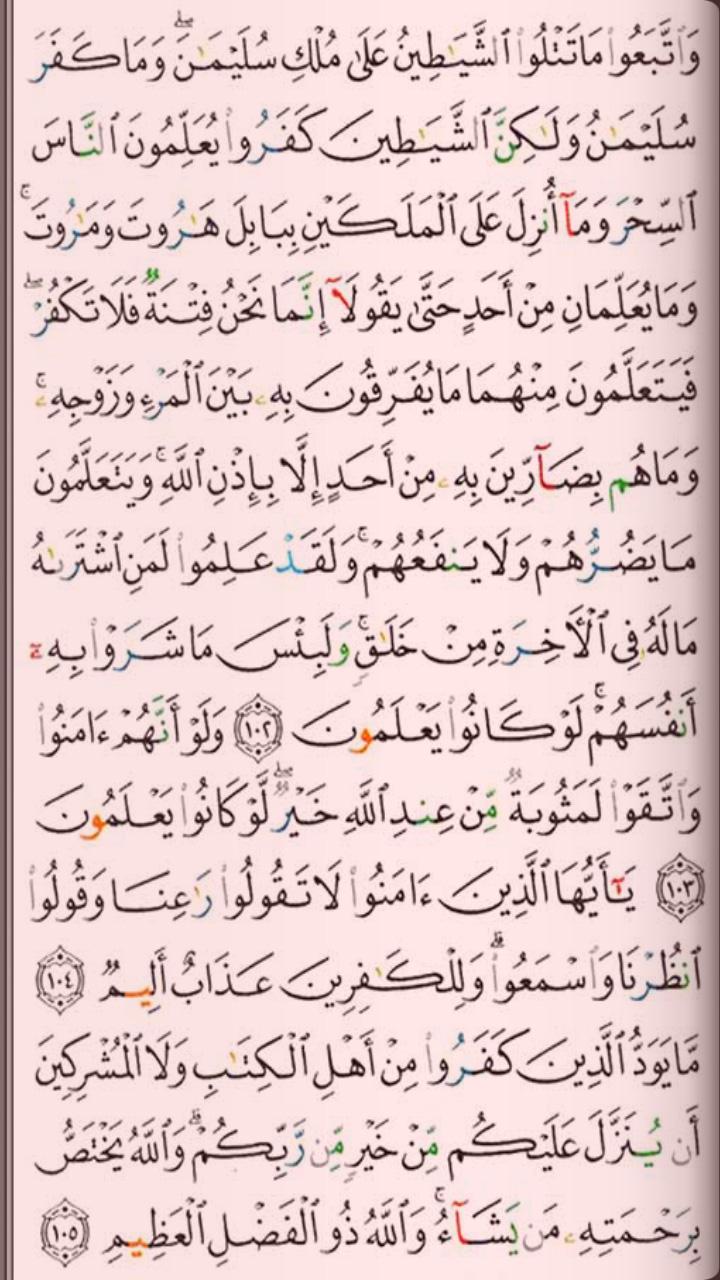 وَٱتَّبَعُوا۟ مَا تَتْلُوا۟ ٱلشَّيَـٰطِينُ عَلَىٰ مُلْكِ سُلَيْمَـٰنَ ۖ وَمَا كَفَرَ
سُلَيْمَـٰنُ وَلَـٰكِنَّ ٱلشَّيَـٰطِينَ كَفَرُوا۟ يُعَلِّمُونَ ٱلنَّاسَ
ٱلسِّحْرَ وَمَآ أُنزِلَ عَلَى ٱلْمَلَكَيْنِ بِبَابِلَ هَـٰرُوتَ وَمَـٰرُوتَ ۚ
وَمَا يُعَلِّمَانِ مِنْ أَحَدٍ حَتَّىٰ يَقُولَآ إِنَّمَا نَحْنُ فِتْنَةٌ فَلَا تَكْفُرْ ۖ
فَيَتَعَلَّمُونَ مِنْهُمَا مَا يُفَرِّقُونَ بِهِۦ بَيْنَ ٱلْمَرْءِ وَزَوْجِهِۦ ۚ
وَمَا هُم بِضَآرِّينَ بِهِۦ مِنْ أَحَدٍ إِلَّا بِإِذْنِ ٱللَّهِ ۚ وَيَتَعَلَّمُونَ
مَا يَضُرُّهُمْ وَلَا يَنفَعُهُمْ ۚ وَلَقَدْ عَلِمُوا۟ لَمَنِ ٱشْتَرَىٰهُ
مَا لَهُۥ فِى ٱلْـَٔاخِرَةِ مِنْ خَلَـٰقٍ ۚ وَلَبِئْسَ مَا شَرَوْا۟ بِهِۦٓ
أَنفُسَهُمْ ۚ لَوْ كَانُوا۟ يَعْلَمُونَ ١٠٢ وَلَوْ أَنَّهُمْ ءَامَنُوا۟
وَٱتَّقَوْا۟ لَمَثُوبَةٌ مِّنْ عِندِ ٱللَّهِ خَيْرٌ ۖ لَّوْ كَانُوا۟ يَعْلَمُونَ
١٠٣ يَـٰٓأَيُّهَا ٱلَّذِينَ ءَامَنُوا۟ لَا تَقُولُوا۟ رَٰعِنَا وَقُولُوا۟
ٱنظُرْنَا وَٱسْمَعُوا۟ ۗ وَلِلْكَـٰفِرِينَ عَذَابٌ أَلِيمٌ ١٠٤
مَّا يَوَدُّ ٱلَّذِينَ كَفَرُوا۟ مِنْ أَهْلِ ٱلْكِتَـٰبِ وَلَا ٱلْمُشْرِكِينَ
أَن يُنَزَّلَ عَلَيْكُم مِّنْ خَيْرٍ مِّن رَّبِّكُمْ ۗ وَٱللَّهُ يَخْتَصُّ
بِرَحْمَتِهِۦ مَن يَشَآءُ ۚ وَٱللَّهُ ذُو ٱلْفَضْلِ ٱلْعَظِيمِ ١٠٥